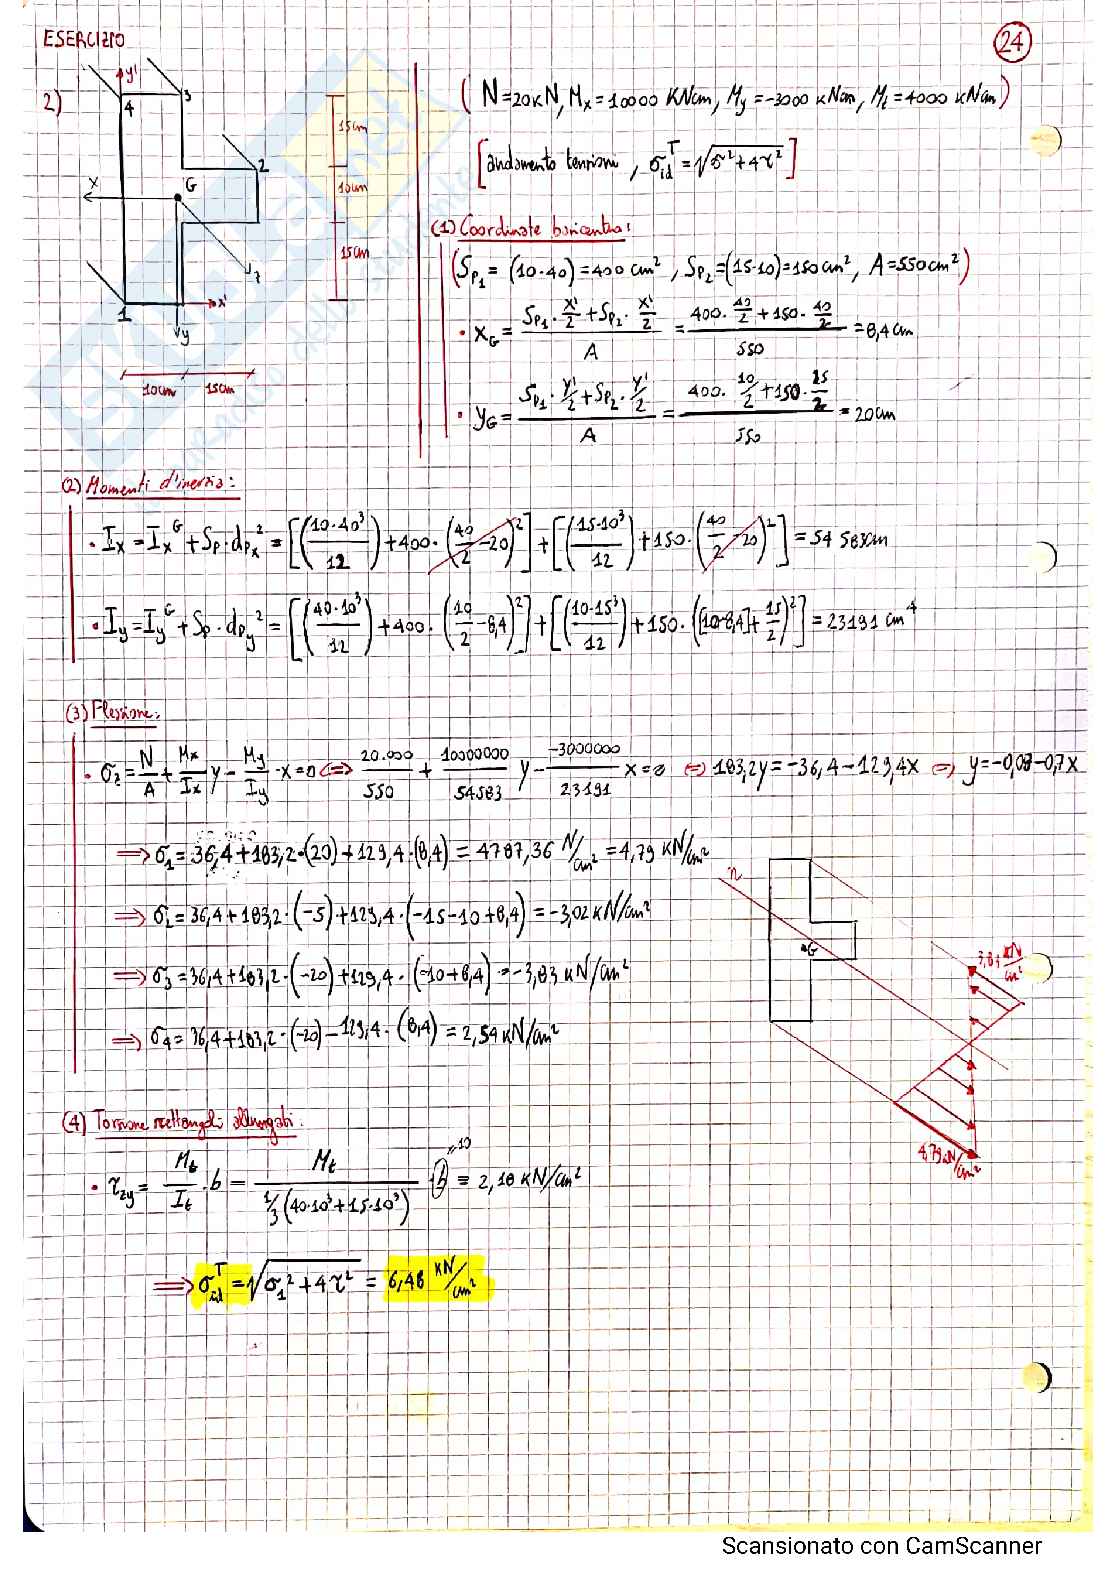 ESERCIZIO
24
2)
y'
4
3
2
x
G
z
1
x'
y
15cm
10cm
15cm
10cm 15cm
( N=20kN, Mx=10000 KNcm, My=-3000 kNcm, Mt=4000 kNcm )
[andamento tensioni, σid^T=√σ²+4τ²]
(1) Coordinate baricentro:
(Sp1=(10·40)=400 cm², Sp2=(15·10)=150cm², A=550cm²)
• xG = (Sp1·x'/2+Sp2·x'/2)/A = (400·40/2+150·40/2)/550 = 8,4cm
• yG = (Sp1·y'/2+Sp2·y'/2)/A = (400·10/2+150·25/2)/550 = 20cm
(2) Momenti d'inerzia:
• Ix=Ix^G+Sp·dpx²=[((10·40³)/12)+400·(40/2-20)²]+[((15·10³)/12)+150·(40/2-20)²]=54583cm
• Iy=Iy^G+Sp·dpy²=[((40·10³)/12)+400·(10/2-8,4)²]+[((10·15³)/12)+150·([10-8,4]+15/2)²]=23191 cm⁴
(3) Flessione:
• σz=N/A+Mx/Ix y-My/Iy·x=0⇔20.000/550+10000000/54583 y-(-3000000)/23191 x=0 ⇔ 183,2y=-36,4-129,4x ⇔ y=-0,08-0,7x
⇒ σ1=36,4+183,2·(20)+129,4·(8,4)=4787,36 N/cm²=4,79 KN/cm²
⇒ σ2=36,4+183,2·(-5)+129,4·(-15-10+8,4)=-3,02KN/cm²
⇒ σ3=36,4+183,2·(-20)+129,4·(-10+8,4)=-3,83 KN/cm²
⇒ σ4=36,4+183,2·(-20)-129,4·(8,4)=2,54KN/cm²
n
G
KN/cm²
4,79KN/cm²
(4) Torsione rettangoli allungati:
• τzy=Mt/It·b=Mt/(1/3(40·10³+15·10³))·b=2,18 KN/cm²
"10
⇒ σid^T=√σ1²+4τ²=6,48 KN/cm²
Scansionato con CamScanner